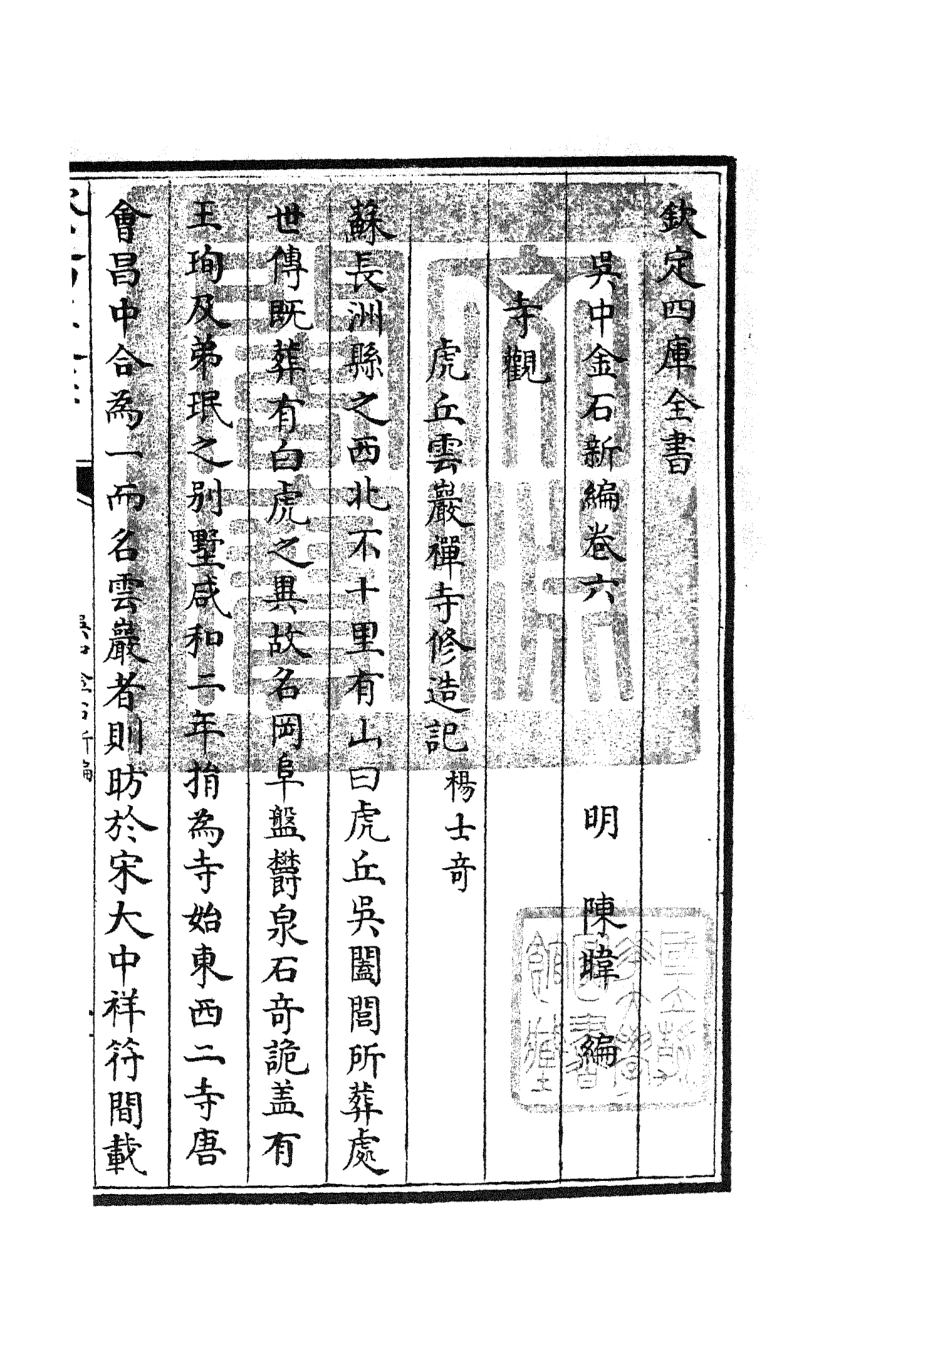 欽定四庫全書
吳中金石新編卷六
明 陳暐 編
寺觀
虎丘雲巖禪寺修造記 楊士竒
蘇長洲縣之西北不十里有山曰虎丘吳闔閭所葬處
世傳既葬有白虎之異故名岡阜盤欝泉石奇詭盖有
王珣及弟珉之别墅咸和二年捐為寺始東西二寺唐
會昌中合為一而名雲巖者則昉於宋大中祥符間載
吳中金石新編